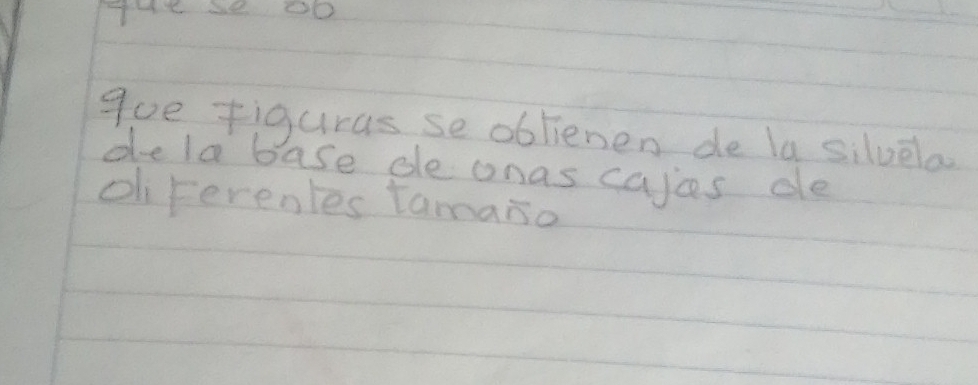 que se ob
que figuras se obtienen de la silueta
de la base de unas cajas de
diferentes tamaño